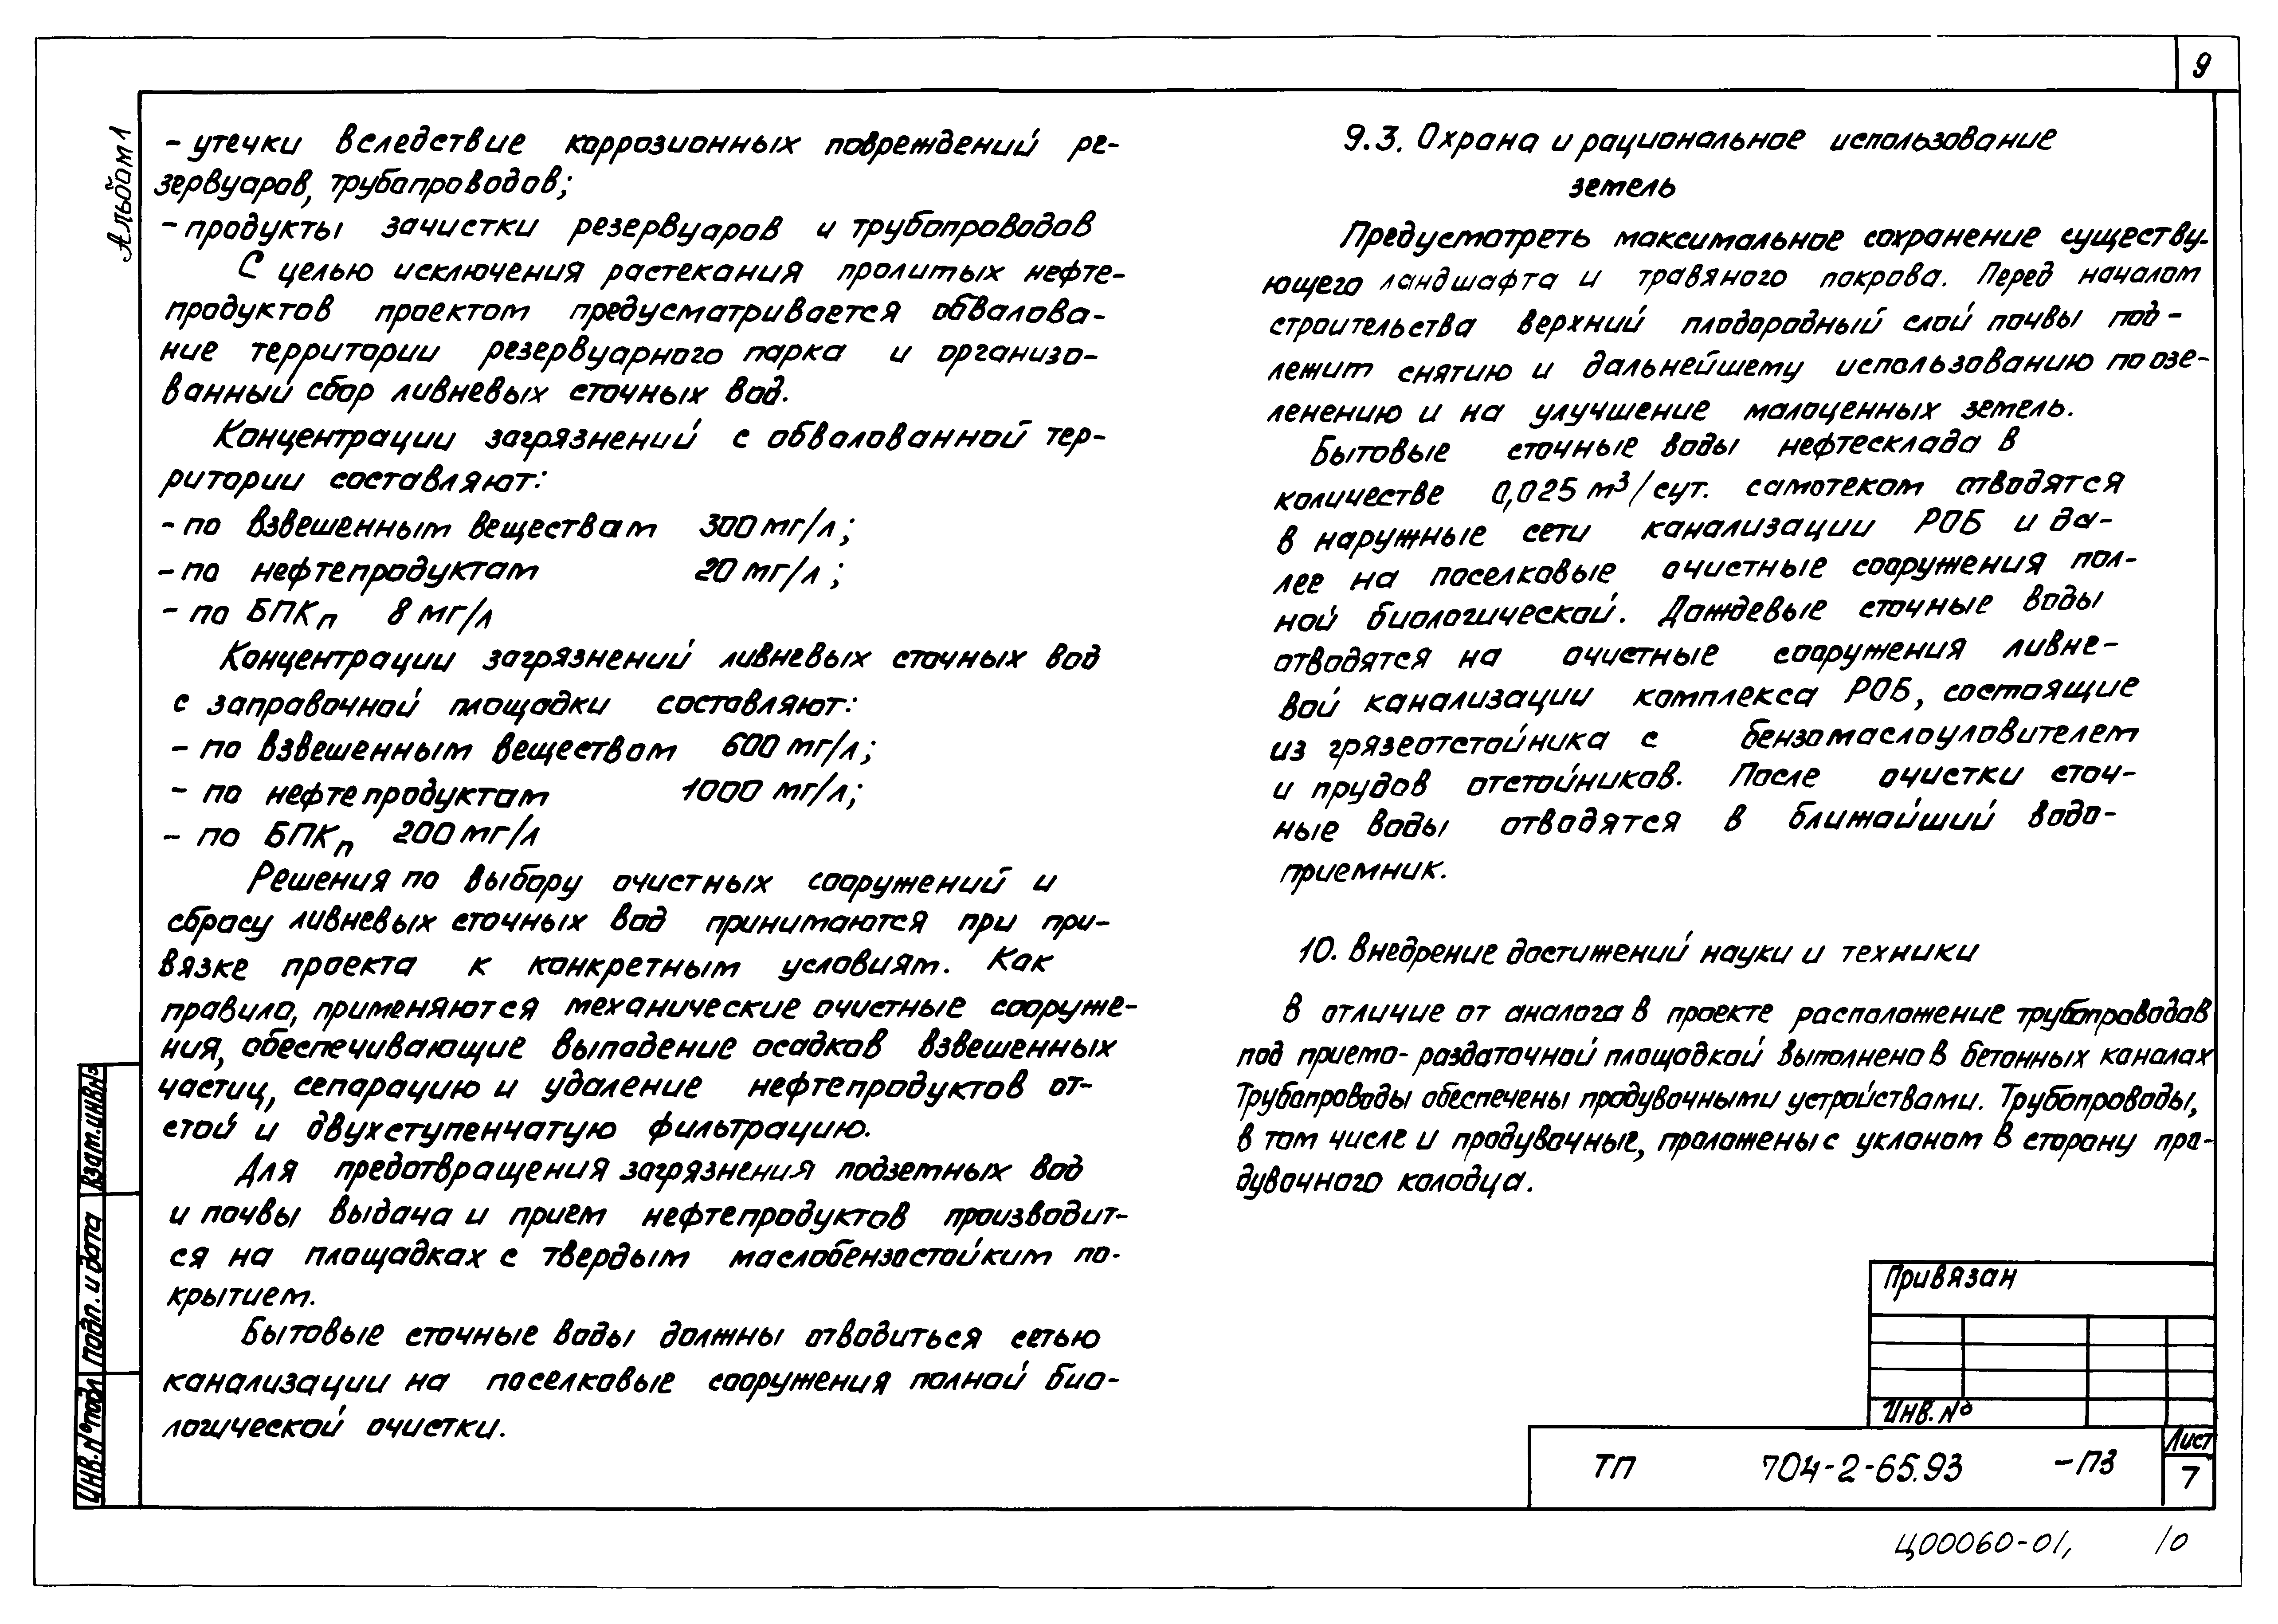 9
Альбом 1
- утечки вследствие коррозионных повреждений ре-
зервуаров, трубопроводов;
- продукты зачистки резервуаров и трубопроводов
С целью исключения растекания пролитых нефте-
продуктов проектом предусматривается обвалова-
ние территории резервуарного парка и организо-
ванный сбор ливневых сточных вод.
Концентрации загрязнений с обвалованной тер-
ритории составляют:
- по взвешенным веществам 300 мг/л;
- по нефтепродуктам 20 мг/л;
- по БПКп 8 мг/л
Концентрации загрязнений ливневых сточных вод
с заправочной площадки составляют:
- по взвешенным веществом 600 мг/л;
- по нефтепродуктам 1000 мг/л;
- по БПКп 200 мг/л
Решения по выбору очистных сооружений и
сбросу ливневых сточных вод принимаются при при-
вязке проекта к конкретным условиям. Как
правило, применяются механические очистные сооруже-
ния, обеспечивающие выпадение осадков взвешенных
частиц, сепарацию и удаление нефтепродуктов от-
стой и двухступенчатую фильтрацию.
Для предотвращения загрязнения подземных вод
и почвы выдача и прием нефтепродуктов производит-
ся на площадках с твердым маслобензостойким по-
крытием.
Бытовые сточные воды должны отводиться сетью
канализации на поселковые сооружения полной био-
логической очистки.
9.3. Охрана и рациональное использование
земель
Предусмотреть максимальное сохранение существу-
ющего ландшафта и травяного покрова. Перед началом
строительства верхний плодородный слой почвы под-
лежит снятию и дальнейшему использованию по озе-
ленению и на улучшение малоценных земель.
Бытовые сточные воды нефтесклада в
количестве 0,025 м³/сут. самотеком отводятся
в наружные сети канализации РОБ и да-
лее на поселковые очистные сооружения пол-
ной биологической. Дождевые сточные воды
отводятся на очистные сооружения ливне-
вой канализации комплекса РОБ, состоящие
из грязеотстойника с бензомаслоуловителем
и прудов отстойников. После очистки сточ-
ные воды отводятся в ближайший водо-
приемник.
10. Внедрение достижений науки и техники
В отличие от аналога в проекте расположение трубопроводов
под приемо-раздаточной площадкой выполнено в бетонных каналах
Трубопроводы обеспечены продувочными устройствами. Трубопроводы,
в том числе и продувочные, проложены с уклоном в сторону про-
дувочного колодца.
Привязан
Инв. №
ТП 704-2-65.93 -ПЗ
Лист
7
Инв. № подл
Подп. и дата
Взам. инв №
Ц00060-01, 10